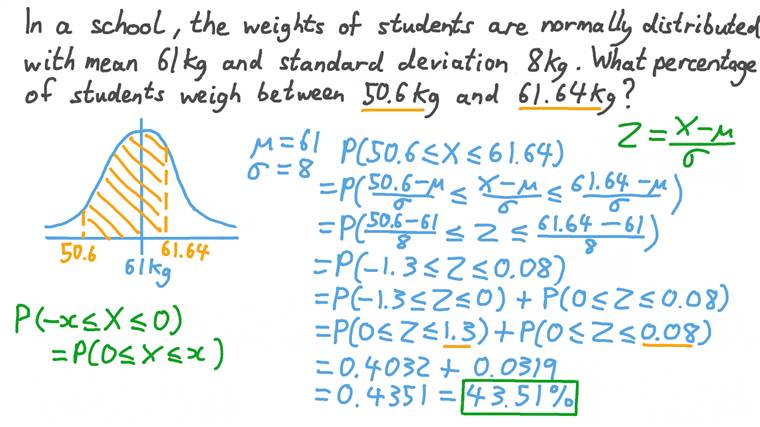 In a school, the weights of students are normally distributed
with mean 61kg and standard deviation 8kg. What percentage
of students weigh between 50.6kg and 61.64kg?
50.6
61kg
61.64
P(-x≤X≤0)
=P(0≤X≤x)
μ=61
σ=8
P(50.6≤X≤61.64)
=P((50.6-μ)/σ ≤ (X-μ)/σ ≤ (61.64-μ)/σ)
=P((50.6-61)/8 ≤ Z ≤ (61.64-61)/8)
=P(-1.3≤Z≤0.08)
=P(-1.3≤Z≤0) + P(0≤Z≤0.08)
=P(0≤Z≤1.3) + P(0≤Z≤0.08)
=0.4032 + 0.0319
=0.4351 = 43.51%
Z = (X-μ)/σ